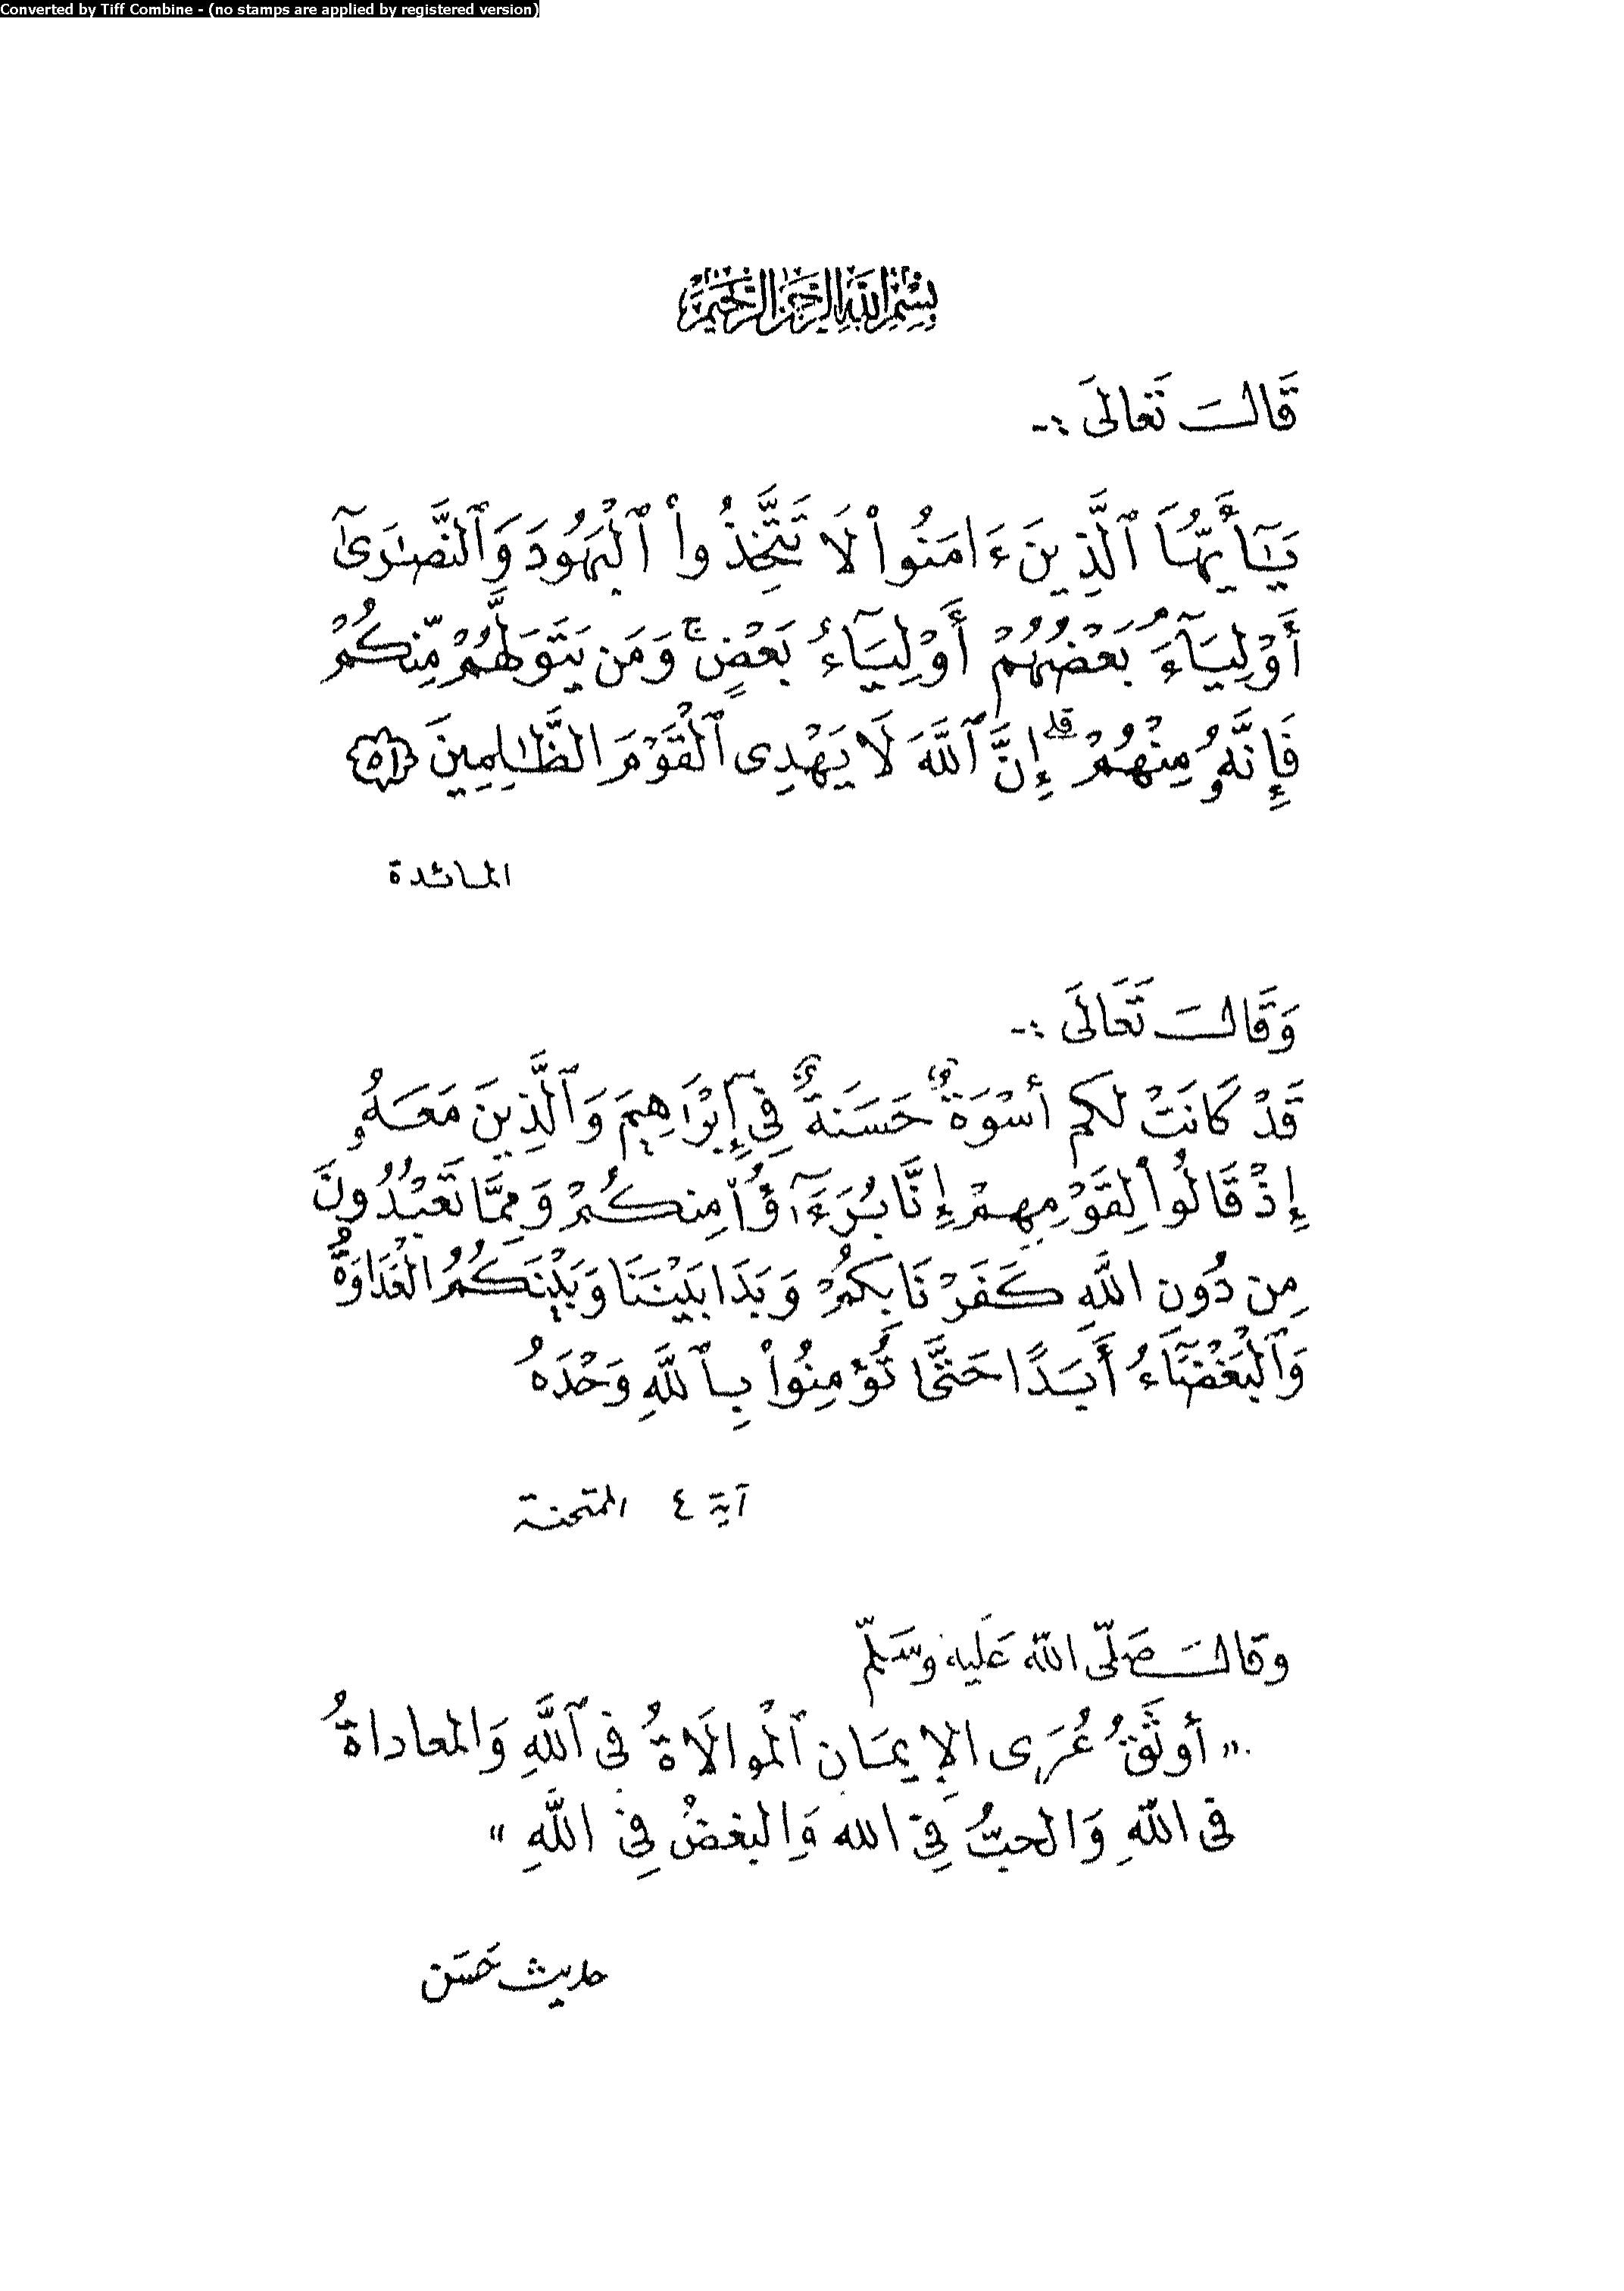 Converted by Tiff Combine - (no stamps are applied by registered version)
بِسْمِ اللَّهِ الرَّحْمَٰنِ الرَّحِيمِ
قَالَ تَعَالَى :-
يَٰٓأَيُّهَا ٱلَّذِينَ ءَامَنُوا۟ لَا تَتَّخِذُوا۟ ٱلْيَهُودَ وَٱلنَّصَٰرَىٰٓ
أَوْلِيَآءَۘ بَعْضُهُمْ أَوْلِيَآءُ بَعْضٍۚ وَمَن يَتَوَلَّهُم مِّنكُمْ
فَإِنَّهُۥ مِنْهُمْۗ إِنَّ ٱللَّهَ لَا يَهْدِى ٱلْقَوْمَ الظَّٰلِمِينَ ﴿٥١﴾
المائدة
وَقَالَ تَعَالَى :-
قَدْ كَانَتْ لَكُمْ أُسْوَةٌ حَسَنَةٌ فِىٓ إِبْرَاهِيمَ وَٱلَّذِينَ مَعَهُۥ
إِذْ قَالُوا۟ لِقَوْمِهِمْ إِنَّا بُرَءَٰٓؤُا۟ مِنكُمْ وَمِمَّا تَعْبُدُونَ
مِن دُونِ اللَّهِ كَفَرْنَا بِكُمْ وَبَدَا بَيْنَنَا وَبَيْنَكُمُ الْعَدَاوَةُ
وَٱلْبَغْضَآءُ أَبَدًا حَتَّى تُؤْمِنُوا۟ بِٱللَّهِ وَحْدَهُ
آية ٤ الممتحنة
وقال صَلّى اللّه عَليه وسَلّم
"أوثَقُ عُرَى الإِيمَان ٱلْموالَاةُ فى ٱللَّهِ وَالمعاداةُ
فى اللّهِ وَالحبُّ فِى الله وَالبغضُ فِى اللَّهِ"
حديث حَسَن